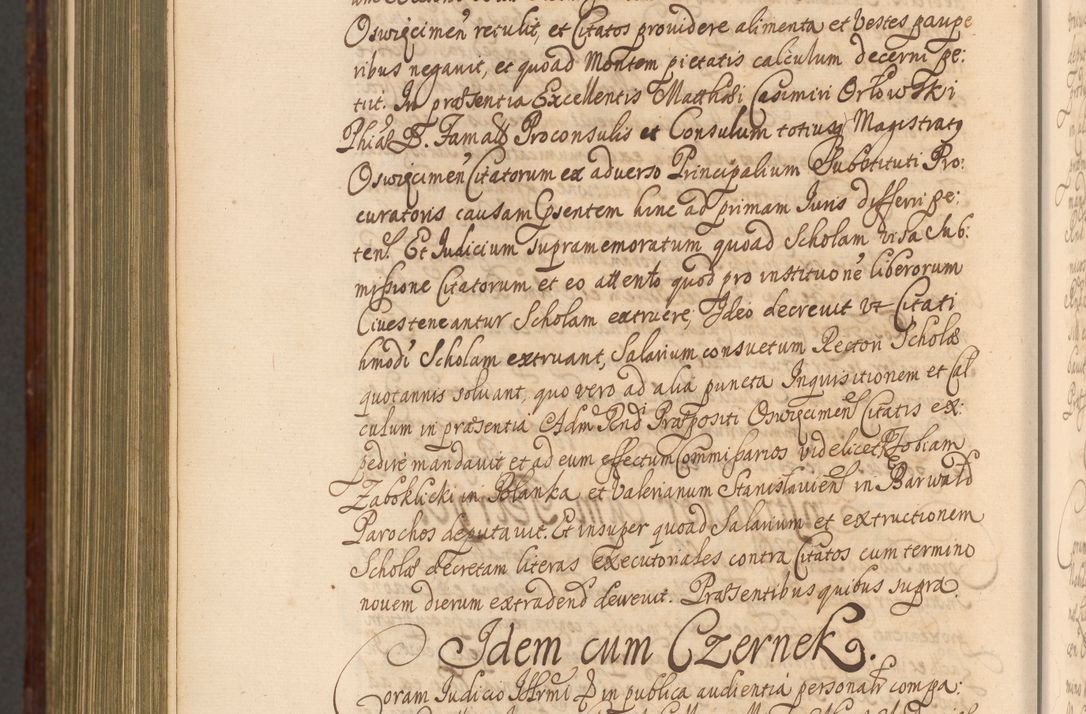 Oswięcimeñ retulit, et Citatos providere alimenta et vestes paupe
ribus negavit, et quoad Montem pietatis calculum decerni pe:
tiit. In præsentia Excellentis Matthæi Casimiri Orłowski
Phiæ D. Famatt Proconsulis et Consulum totiusq Magistratq
Oswięcimeñ Citatorum ex adverso Principalium Substituti Pro:
curatoris causam Præsentem hinc ad primam Juris differri pe:
teñ. Et Judicium supramemoratum quoad Scholam visa Sub:
missione Citatorum et eo attento quod pro instituoñe liberorum
Cives teneantur Scholam extruere, Ideo decrevit ut Citati
hmodi Scholam extruant, Salarium consvetum Rectori Scholæ
quotannis solvant, quo vero ad alia puncta Inquisitionem et Cal
culum in præsentia Adm Rnd Præpositi Oswięcimeñ Citatis ex:
pedire mandavit et ad eum effectum Commissarios videlicet Tobiam
Zaboklicki in Polanka et Valerianum Stanislavieñ in Barwałd
Parochos deputavit. Et insuper quoad Salarium et extructionem
Scholæ decretam literas executoriales contra Citatos cum termino
novem dierum extradend decrevit. Præsentibus quibus supra.
Idem cum Czernek.
Coram Judicio Illrmi D in publica audientia personalr compa: